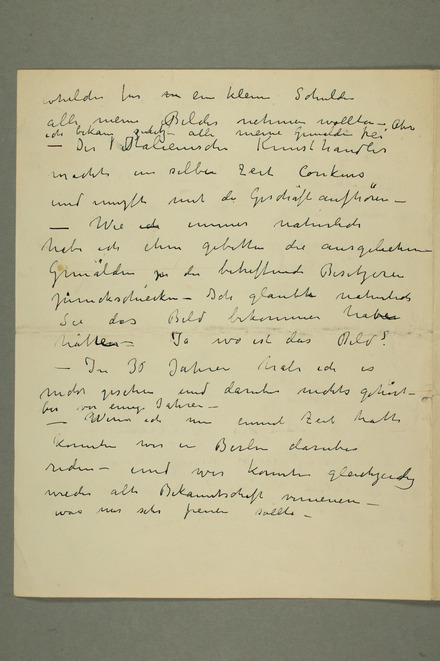 für ein kleine Schulde
alle meine Bilder nehmen wollten – Aber
ich bekam zuletzt – alle meine Gemälde frei
– Der Italienische Kunsthändler
machte im selben Zeit Conkurs
und musste mit die Geschäft aufhören –
– Wie immer natürlich
habe ich ihm gebetten die ausgeliehene
Gemälden zu die betreffende Besitzeren
zurückschicken – Ich glaubte natürlich
Sie das Bild bekommen haben
hätten – Ja wo ist das Bild?
– In 30 Jahren habe ich es
nicht gesehen und darüber nichts gehört –
bis vor einige Jahren –
– Wenn ich nun einmal Zeit hatte
konnten wir in Berlin darüber
reden – und wir konnten gleichzeidig
wieder alte Bekanntschaft erneuen –
was mir sehr freuen sollte –